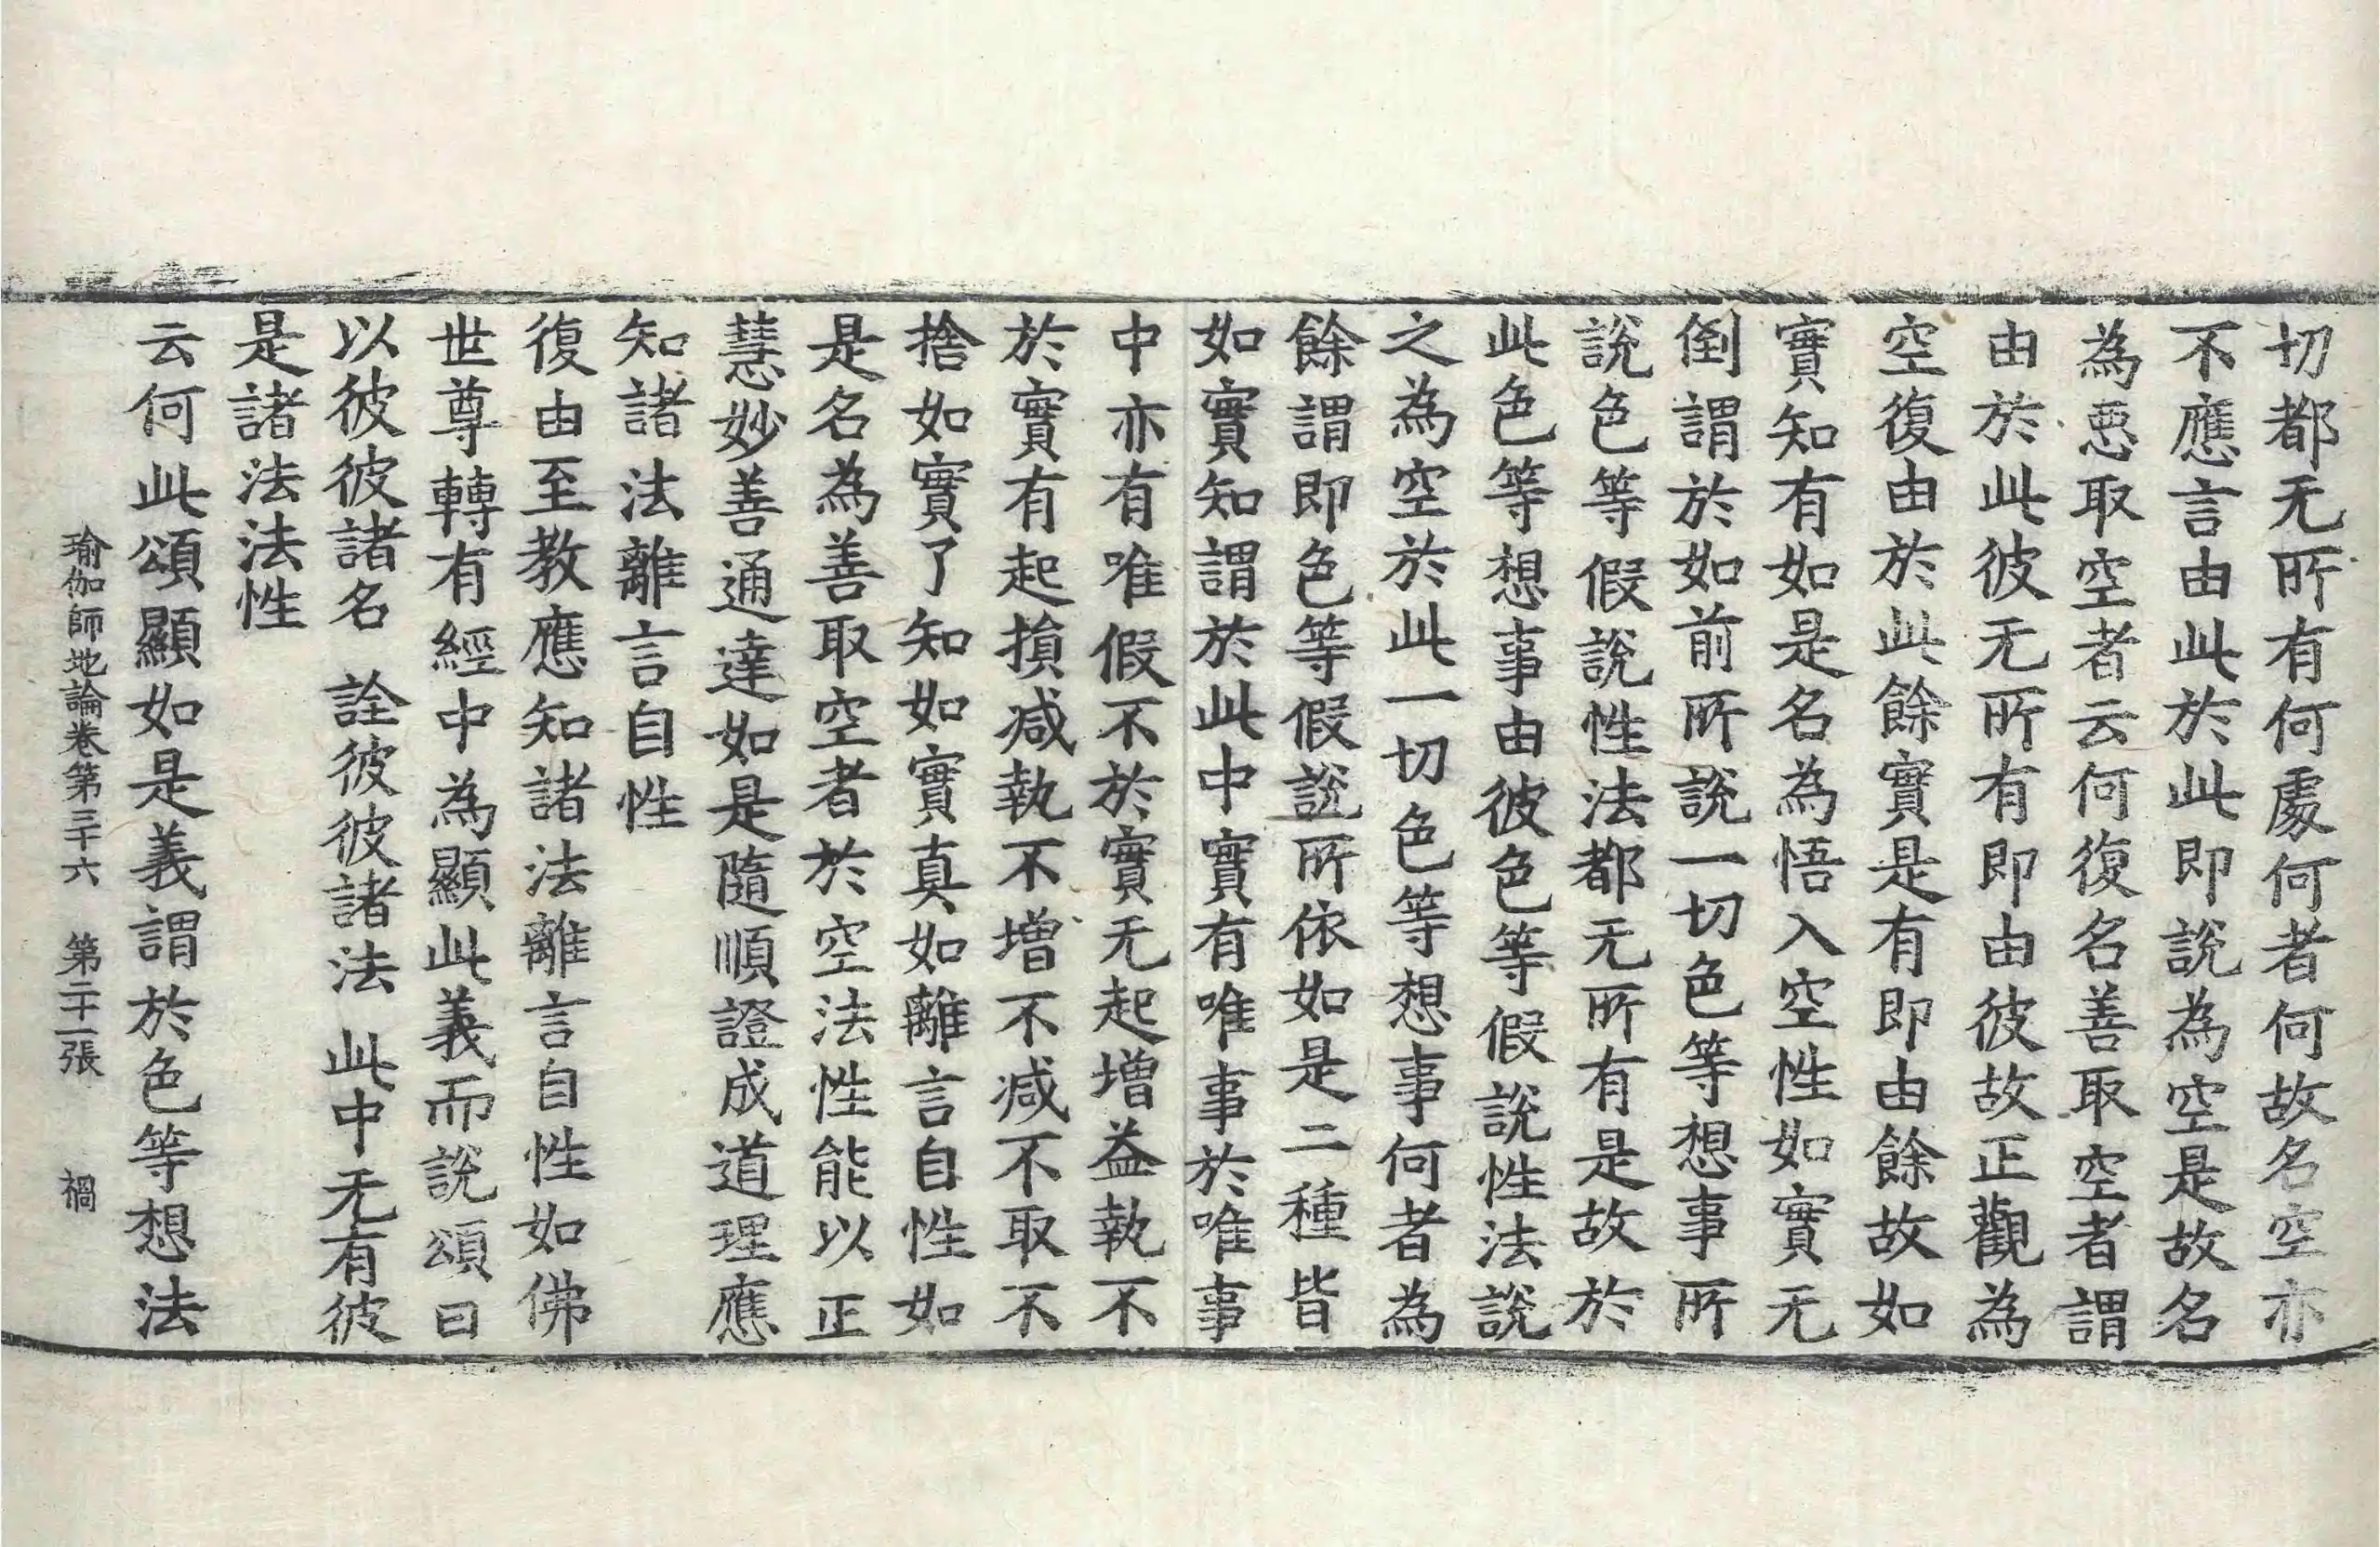 切都无所有何處何者何故名空亦
不應言由此於此即說為空是故名
為惡取空者云何復名善取空者謂
由於此彼无所有即由彼故正觀為
空復由於此餘實是有即由餘故如
實知有如是名為悟入空性如實无
倒謂於如前所說一切色等想事所
說色等假說性法都无所有是故於
此色等想事由彼色等假說性法說
之為空於此一切色等想事何者為
餘謂即色等假說所依如是二種皆
如實知謂於此中實有唯事於唯事
中亦有唯假不於實无起增益執不
於實有起損减執不增不减不取不
捨如實了知如實真如離言自性如
是名為善取空者於空法性能以正
慧妙善通達如是隨順證成道理應
知諸法離言自性
復由至教應知諸法離言自性如佛
世尊轉有經中為顯此義而說頌曰
以彼彼諸名　詮彼彼諸法　此中无有彼
是諸法法性
云何此頌顯如是義謂於色等想法
瑜伽師地論卷第三十六　第二十一張　禍